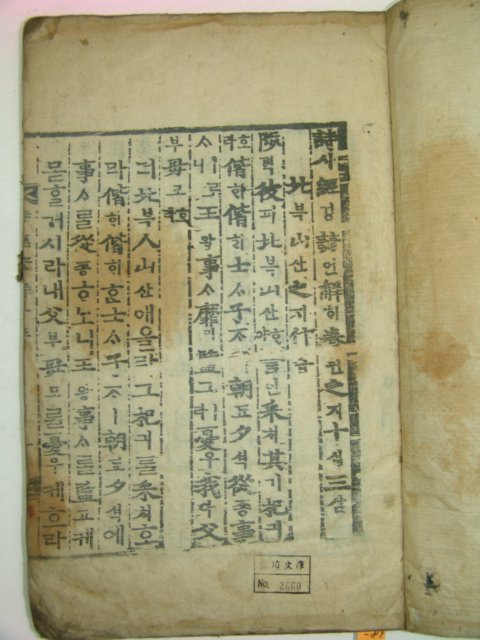 詩시經경諺언解ᄒᆡ卷권之지十십三삼
北븍山산之지什십
陟텩彼피北븍山산ᄒᆞ야言언采ᄎᆡ其기杞긔
호라偕ᄒᆡ偕ᄒᆡ士ᄉᆞ子ᄌᆞㅣ朝됴夕셕從죵事
ᄉᆞ王왕事ᄉᆞ靡미盬고憂우我아父
부母모호라
뎌北븍山산애올라그杞긔를采ᄎᆡ호
라偕ᄒᆡ偕ᄒᆡᄒᆞᆫ士ᄉᆞ子ᄌᆞㅣ朝됴夕셕에
事ᄉᆞ를從죵ᄒᆞ노니王왕事ᄉᆞ를盬고케
몯ᄒᆞᆯ거시라내父부母모를憂우케호라
No. 2660